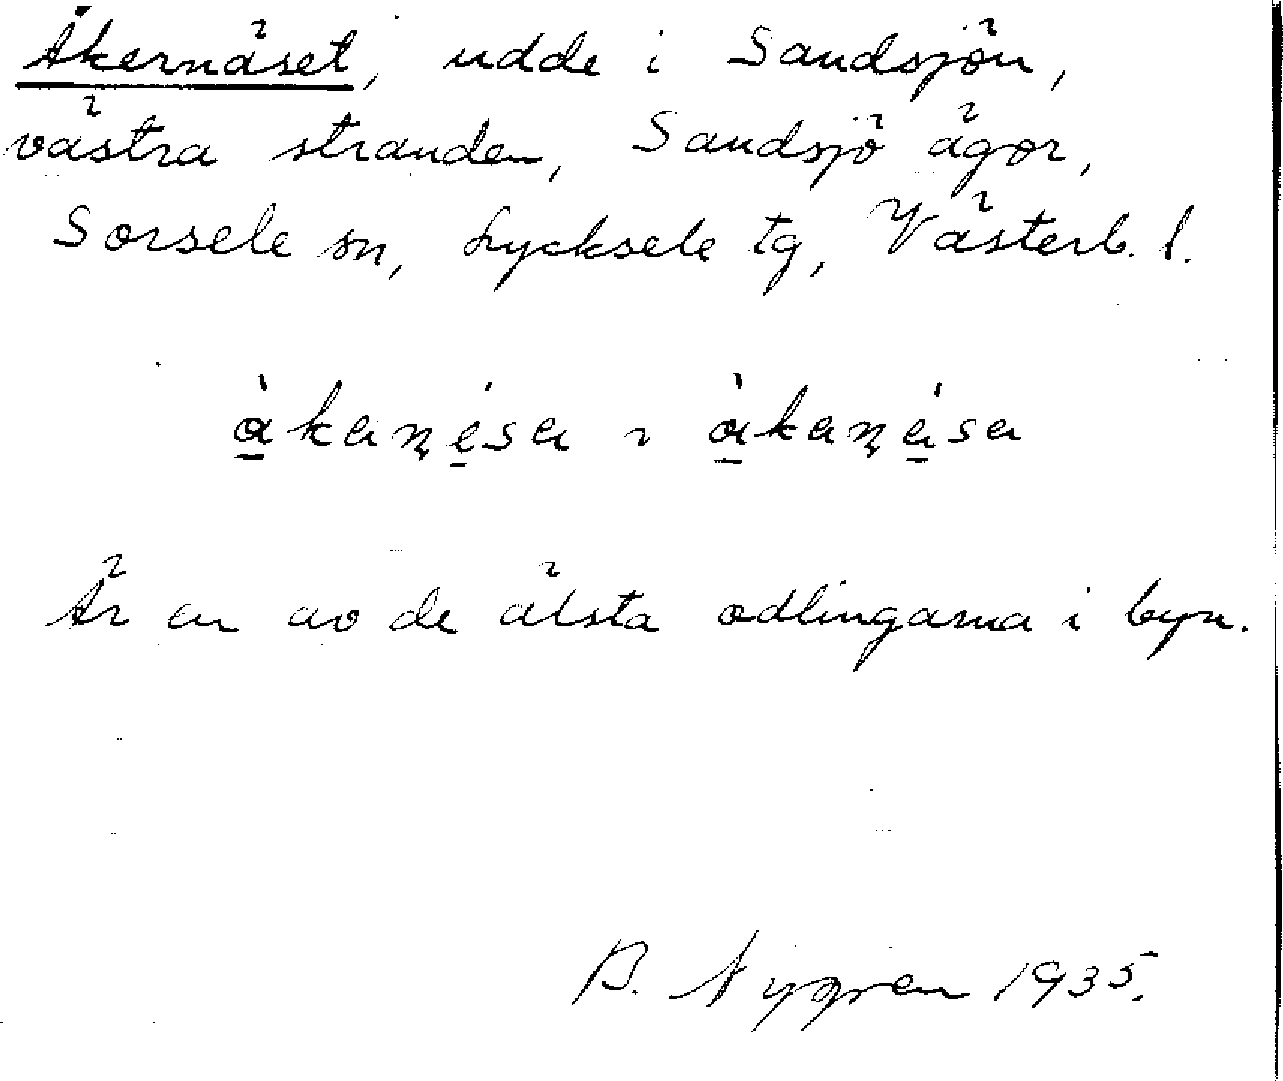 Åkernäset, udde i Sandsjön,
västra stranden, Sandsjö ägor,
Sorsele sn, Lycksele tg, Västerb. l.
àkaṇése ~ àkaṇáse
Är en av de älsta odlingarna i byn.
B. Nygren 1935.